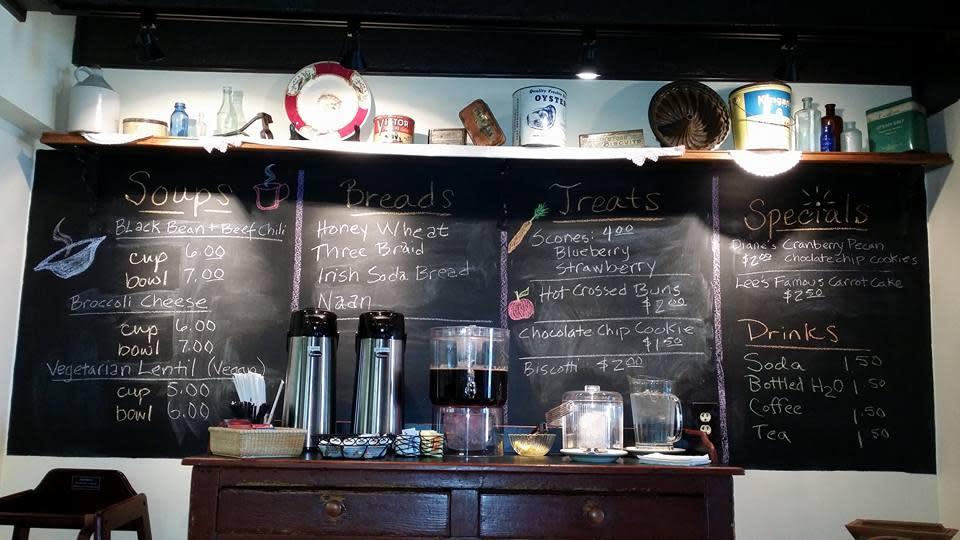 Quality Freshly
OYSTER
VICTOR
BISCUITS
King
Soups
Black Bean + Beef Chili
cup 6.00
bowl 7.00
Broccoli Cheese
cup 6.00
bowl 7.00
Vegetarian Lentil (Vegan)
cup 5.00
bowl 6.00
Breads
Honey Wheat
Three Braid
Irish Soda Bread
Naan
Treats
Scones: 4.00
Blueberry
Strawberry
Hot Crossed Buns
$2.00
Chocolate Chip Cookie
$1.50
Biscotti $2.00
Specials
Diane's Cranberry Pecan
$2.00 chocolate chip cookies
Lee's Famous Carrot Cake
$2.50
Drinks
Soda 1.50
Bottled H2O 1.50
Coffee 1.50
Tea 1.50